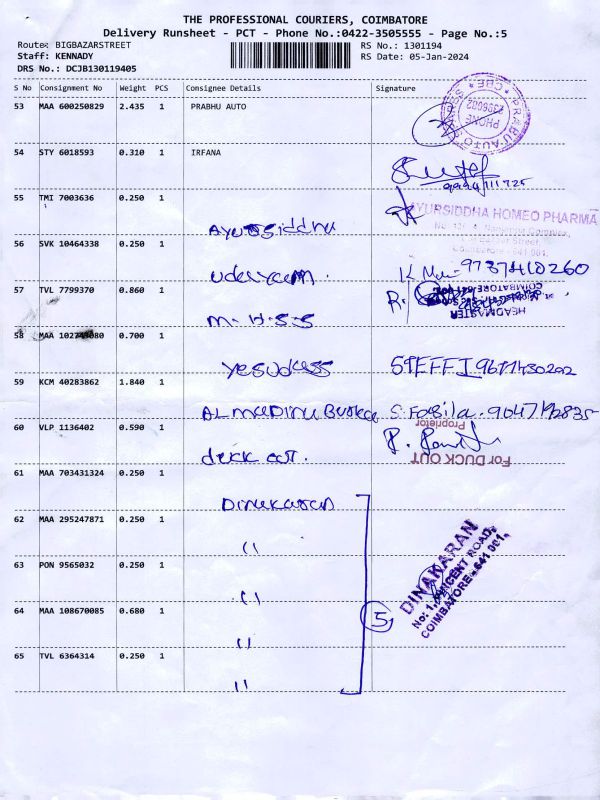 THE PROFESSIONAL COURIERS, COIMBATORE
Delivery Runsheet - PCT - Phone No.:0422-3505555 - Page No.:5
Route: BIGBAZARSTREET
Staff: KENNADY
DRS No.: DCJB130119405
RS No.: 1301194
RS Date: 05-Jan-2024
S No Consignment No Weight PCS Consignee Details Signature
53 MAA 600250829 2.435 1 PRABHU AUTO
PRABU AUTO SPARES CBE
PHONE
2396602
54 STY 6018593 0.310 1 IRFANA
9994111725
55 TMI 7003636 0.250 1
Ayursiddha
AYURSIDDHA HOMEO PHARMA
Coimbatore - 641 001.
56 SVK 10464338 0.250 1
Udayam.
9737410260
57 TVL 7799370 0.860 1
M.H.S.S
HEADMASTER
COIMBATORE-641 001.
58 MAA 102743080 0.700 1
Yesudass
STEFFI
59 KCM 40283862 1.840 1
S. Fasila. 9047192835
60 VLP 1136402 0.590 1
duck out.
For DUCK OUT
Proprietor
61 MAA 703431324 0.250 1
Dinakaran
62 MAA 295247871 0.250 1
"
63 PON 9565032 0.250 1
"
64 MAA 108670085 0.680 1
"
65 TVL 6364314 0.250 1
"
5
DINAKARAN
No: 1, VINCENT ROAD,
COIMBATORE - 641 001.